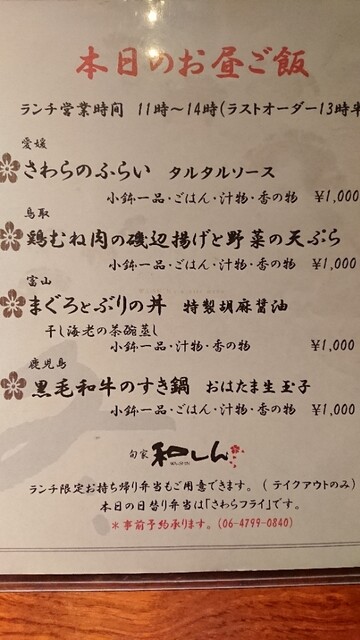 本日のお昼ご飯
ランチ営業時間 11時～14時(ラストオーダー13時半
愛媛
さわらのふらい タルタルソース
小鉢一品・ごはん・汁物・香の物 ¥1,000
鳥取
鶏むね肉の磯辺揚げと野菜の天ぷら
小鉢一品・ごはん・汁物・香の物 ¥1,000
富山
まぐろとぶりの丼 特製胡麻醤油
干し海老の茶碗蒸し
小鉢一品・汁物・香の物 ¥1,000
鹿児島
黒毛和牛のすき鍋 おはたま生玉子
小鉢一品・ごはん・汁物・香の物 ¥1,000
旬家 和しん
ランチ限定お持ち帰り弁当もご用意できます。(テイクアウトのみ)
本日の日替り弁当は「さわらフライ」です。
*事前予約承ります。(06-4799-0840)